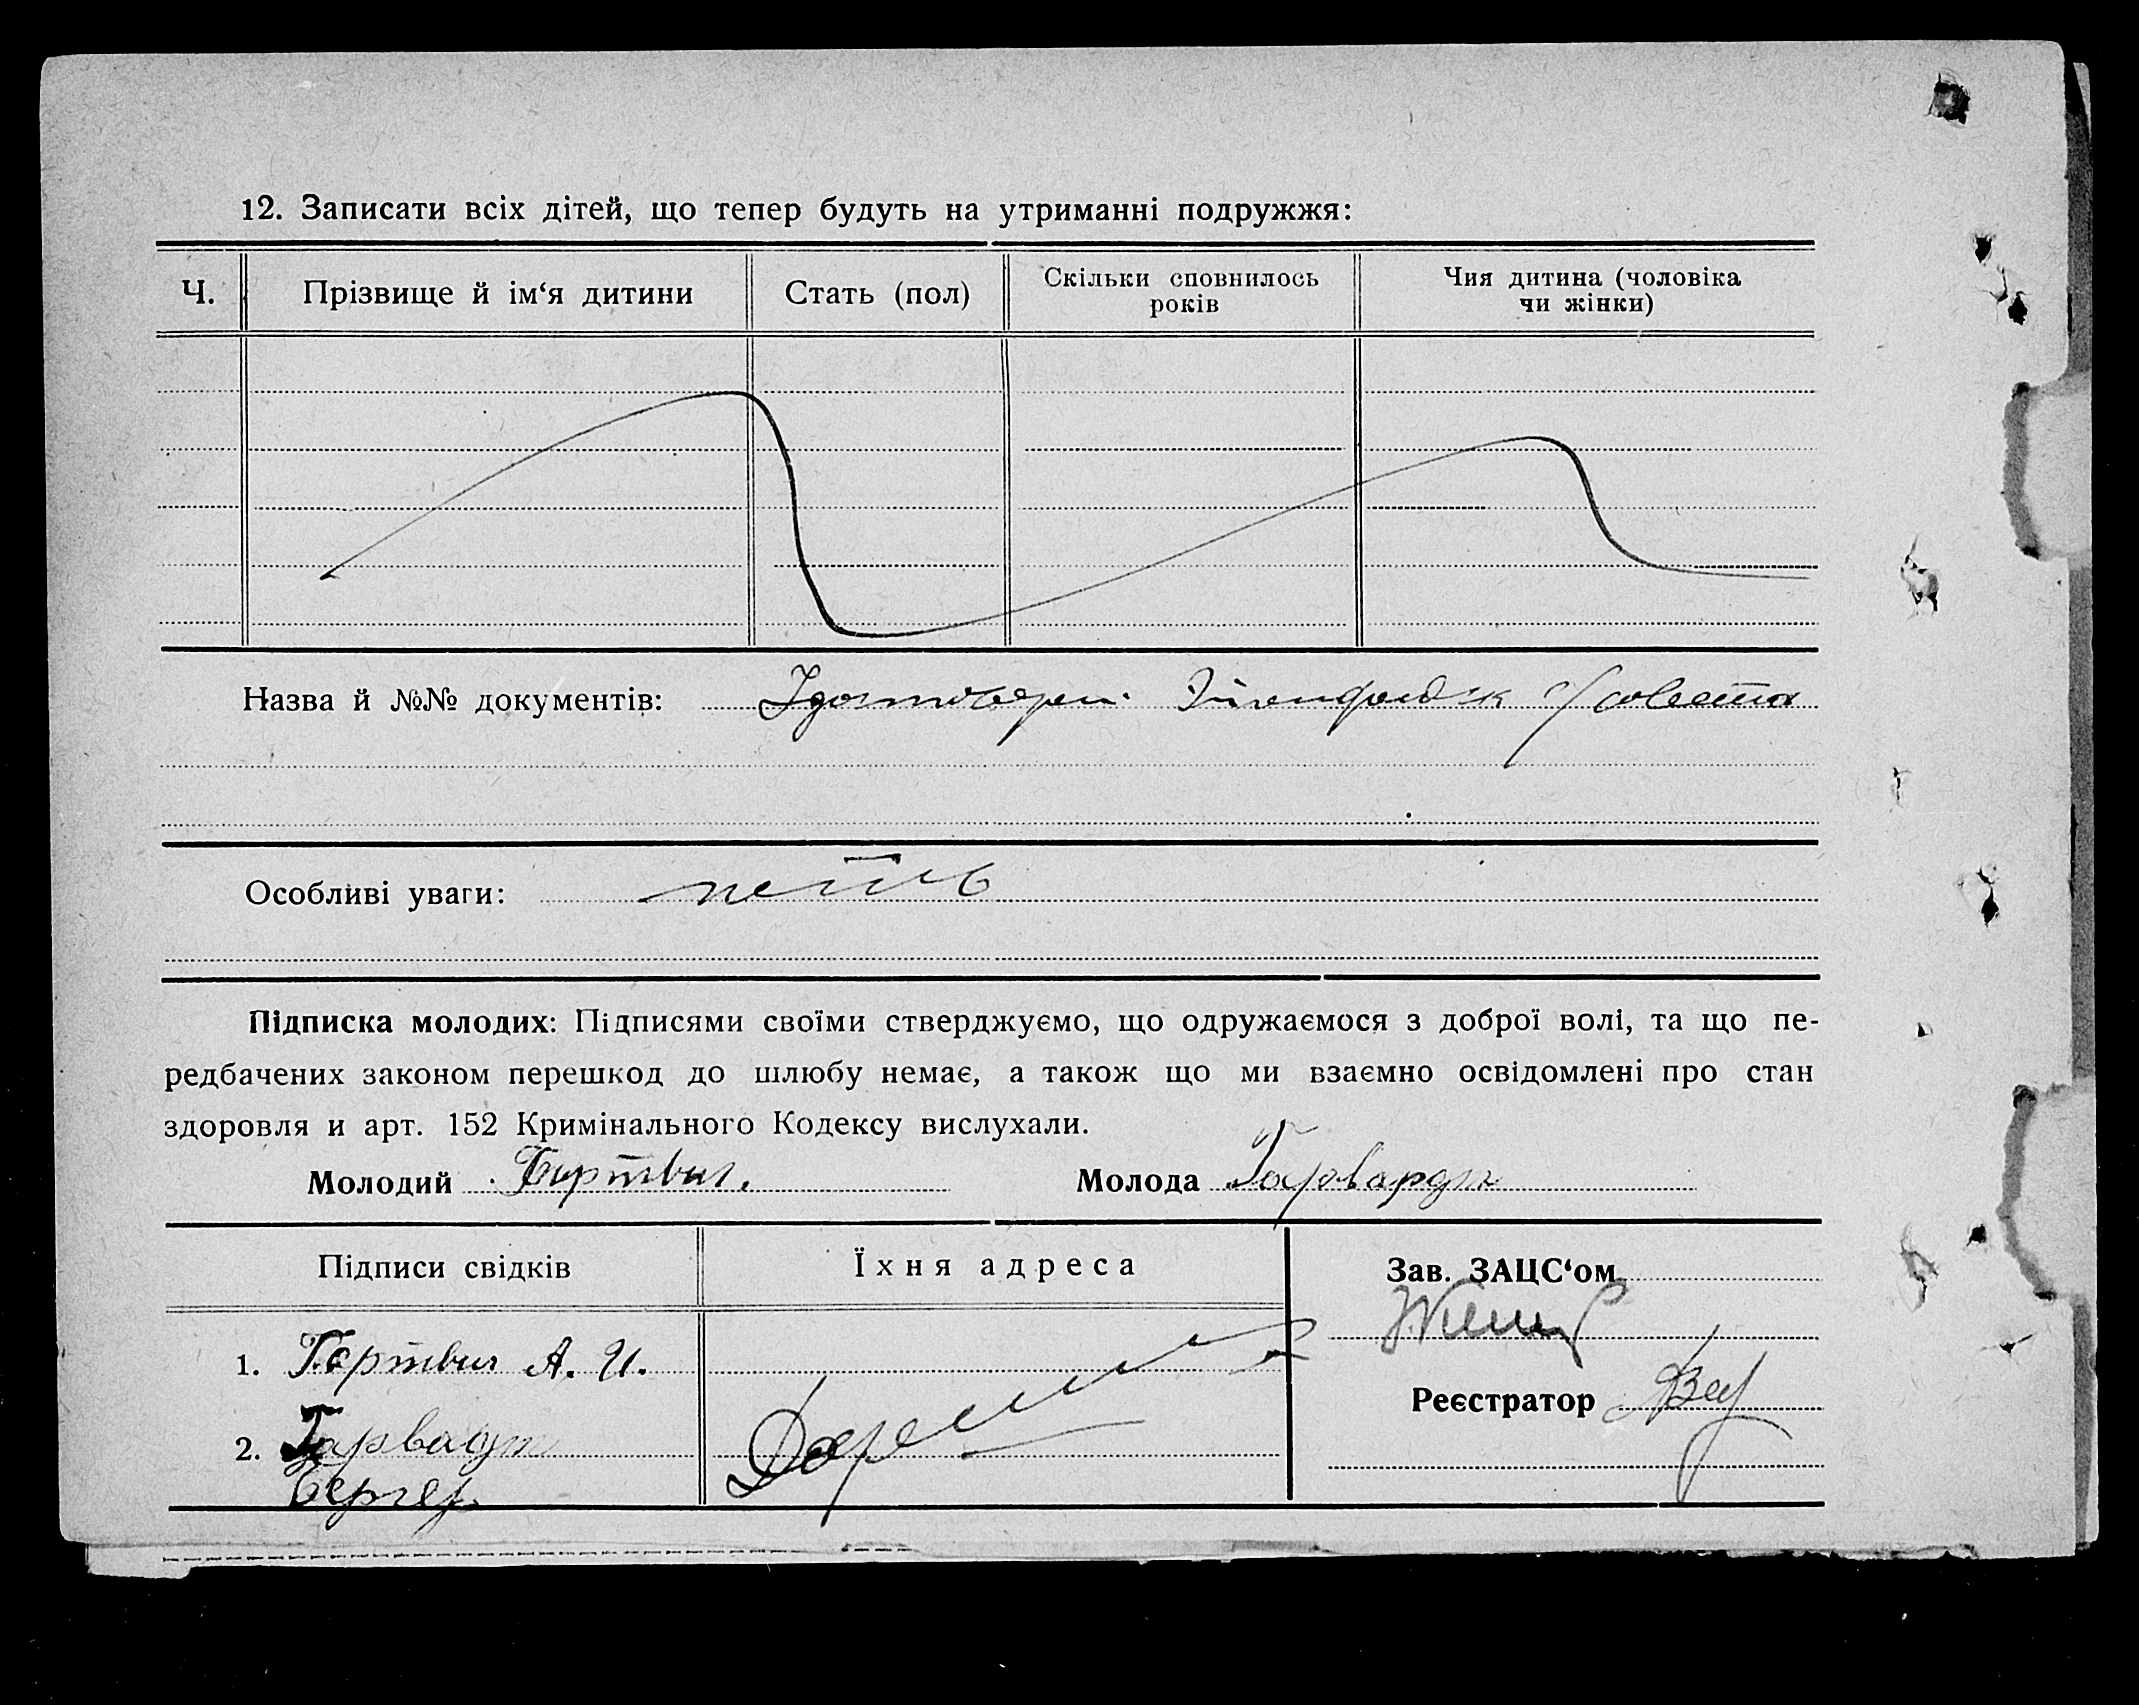 12. Записати всіх дітей, що тепер будуть на утриманні подружжя:
Ч. Прізвище й ім‘я дитини Стать (пол) Скільки сповнилось років Чия дитина (чоловіка чи жінки)
Назва й №№ документів: Удостоверен. с/совета
Особливі уваги: нетъ
Підписка молодих: Підписями своїми стверджуємо, що одружаємося з доброї волі, та що пе-
редбачених законом перешкод до шлюбу немає, а також що ми взаємно освідомлені про стан
здоровля и арт. 152 Кримінального Кодексу вислухали.
Молодий Молода
Підписи свідків Їхня адреса Зав. ЗАЦС‘ом
1. Гертвиг А. И.
Реєстратор
2.
Бергер